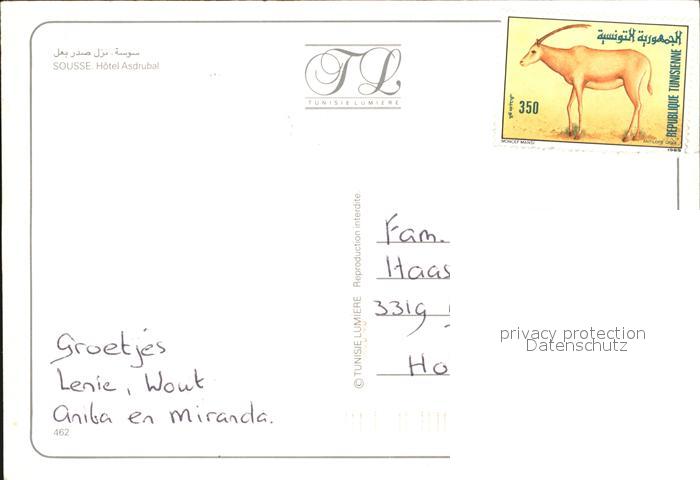 سوسة. نزل صدر بعل
SOUSSE. Hôtel Asdrubal
TL
TUNISIE LUMIERE
الجمهورية التونسية
REPUBLIQUE TUNISIENNE
350
MONCEF MANSI
1989
© TUNISIE LUMIERE Reproduction interdite
Fam.
Haas
3319
Ho
privacy protection
Datenschutz
Groetjes
Lenie, Wout
Anita en Miranda.
462